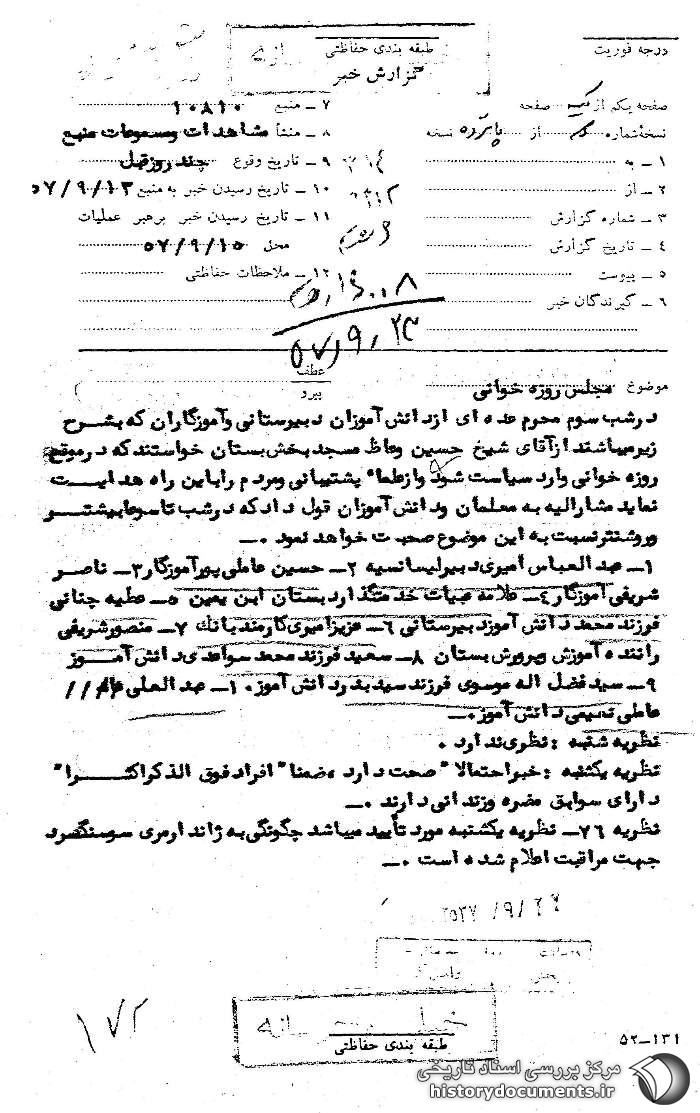 درجه فوریت
طبقه بندی حفاظتی
گزارش خبر
صفحه یکم از یک صفحه
نسخه شماره از پانزده نسخه
۱ ـ به
۲ ـ از
۳ ـ شماره گزارش
۴ ـ تاریخ گزارش
۵ ـ پیوست
۶ ـ گیرندگان خبر
۷ ـ منبع ۱۰۸۱۰
۸ ـ منشأ مشاهدات ومسموعات منبع
۹ ـ تاریخ وقوع چند روز قبل
۱۰ ـ تاریخ رسیدن خبر به منبع ۵۷/۹/۱۳
۱۱ ـ تاریخ رسیدن خبر برهبر عملیات
محل ۵۷/۹/۱۵
۱۲ ـ ملاحظات حفاظتی
۳۱۴
۳۱۲
۵۷/۹/۲۳
موضوع مجلس روزه خوانی
عطف
پیرو
درشب سوم محرم عده ای ازدانش آموزان دبیرستانی وآموزگاران که بشرح
زیرمیباشند ازآقای شیخ حسین وعاظ مسجد بخش بستان خواستند که درموقع
روزه خوانی وارد سیاست شود وازعلماء پشتیبانی ومردم راباین راه هدایت
نماید مشارالیه به معلمان ودانش آموزان قول داد که درشب تاسوعا بیشتر
وروشنتر نسبت به این موضوع صحبت خواهد نمود ۰ـ
۱ـ عبدالعباس امیری دبیر لیسانسیه ۲ـ حسین عاملی پور آموزگار ۳ـ ناصر
شریفی آموزگار ۴ـ علامه بیات خدمتگذار دبستان ابن یمین ۵ـ عطیه چنانی
فرزند محمد دانش آموز دبیرستانی ۶ـ عزیز امیری کارمند بانک ۷ـ منصور شریفی
راننده آموزش وپرورش بستان ۸ـ سعید فرزند محمد سواعدی دانش آموز
۹ـ سید فضل اله موسوی فرزند سید بدر دانش آموز ۱۰ـ عبدالعلی
عاملی نسیمی دانش آموز ۰ـ
نظریه شنبه : نظری ندارد ۰
نظریه یکشنبه : خبر احتمالا" صحت دارد ، ضمنا" افراد فوق الذکر اکثرا"
دارای سوابق مضره وزندانی دارند ۰ـ
نظریه ۷۶ـ نظریه یکشنبه مورد تأیید میباشد چگونگی به ژاندارمری سوسنگرد
جهت مراقبت اعلام شده است ۰ـ
۱۷۲
طبقه بندی حفاظتی
۵۲ـ۱۳۱
مرکز بررسی اسناد تاریخی
historydocuments.ir